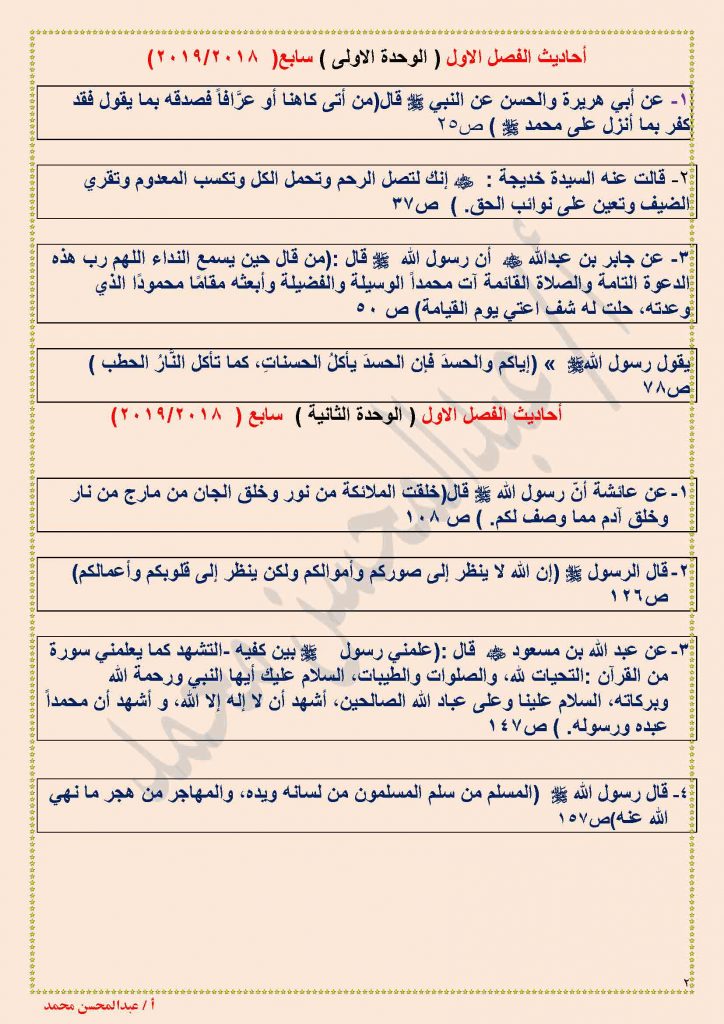 أحاديث الفصل الاول ( الوحدة الاولى ) سابع( ٢٠١٩/٢٠١٨)
١- عن أبي هريرة والحسن عن النبي ﷺ قال(من أتى كاهنا أو عرَّافاً فصدقه بما يقول فقد
كفر بما أنزل على محمد ﷺ ) ص٢٥
٢- قالت عنه السيدة خديجة : ﷺ إنك لتصل الرحم وتحمل الكل وتكسب المعدوم وتقري
الضيف وتعين على نوائب الحق. ) ص٣٧
٣- عن جابر بن عبدالله أن رسول الله ﷺ قال :(من قال حين يسمع النداء اللهم رب هذه
الدعوة التامة والصلاة القائمة آت محمداً الوسيلة والفضيلة وأبعثه مقامًا محمودًا الذي
وعدته، حلت له شف اعتي يوم القيامة) ص ٥٠
يقول رسول اللهﷺ » (إياكم والحسدَ فإن الحسدَ يأكلُ الحسناتِ، كما تأكل النَّارُ الحطب )
ص٧٨
أحاديث الفصل الاول ( الوحدة الثانية ) سابع ( ٢٠١٩/٢٠١٨)
١- عن عائشة أنّ رسول الله ﷺ قال(خلقت الملائكة من نور وخلق الجان من مارج من نار
وخلق آدم مما وصف لكم. ) ص ١٠٨
٢- قال الرسول ﷺ (إن الله لا ينظر إلى صوركم وأموالكم ولكن ينظر إلى قلوبكم وأعمالكم)
ص١٢٦
٣- عن عبد الله بن مسعود قال :(علمني رسول ﷺ بين كفيه -التشهد كما يعلمني سورة
من القرآن :التحيات لله، والصلوات والطيبات، السلام عليك أيها النبي ورحمة الله
وبركاته، السلام علينا وعلى عباد الله الصالحين، أشهد أن لا إله إلا الله، و أشهد أن محمداً
عبده ورسوله. ) ص١٤٧
٤- قال رسول الله ﷺ (المسلم من سلم المسلمون من لسانه ويده، والمهاجر من هجر ما نهي
الله عنه)ص١٥٧
٢
أ / عبدالمحسن محمد
أ/ عبدالمحسن محمد